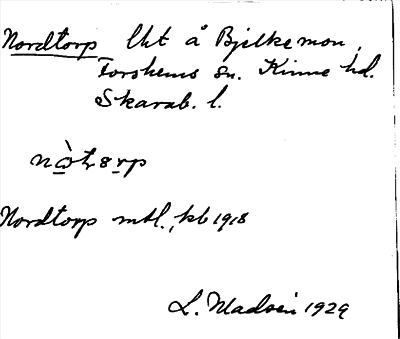 Nordtorp lht å Bjelkemon,
Forshems sn. Kinne hd.
Skarab. l.
Nordtorp mtl., kb 1918
L. Madsén 1929